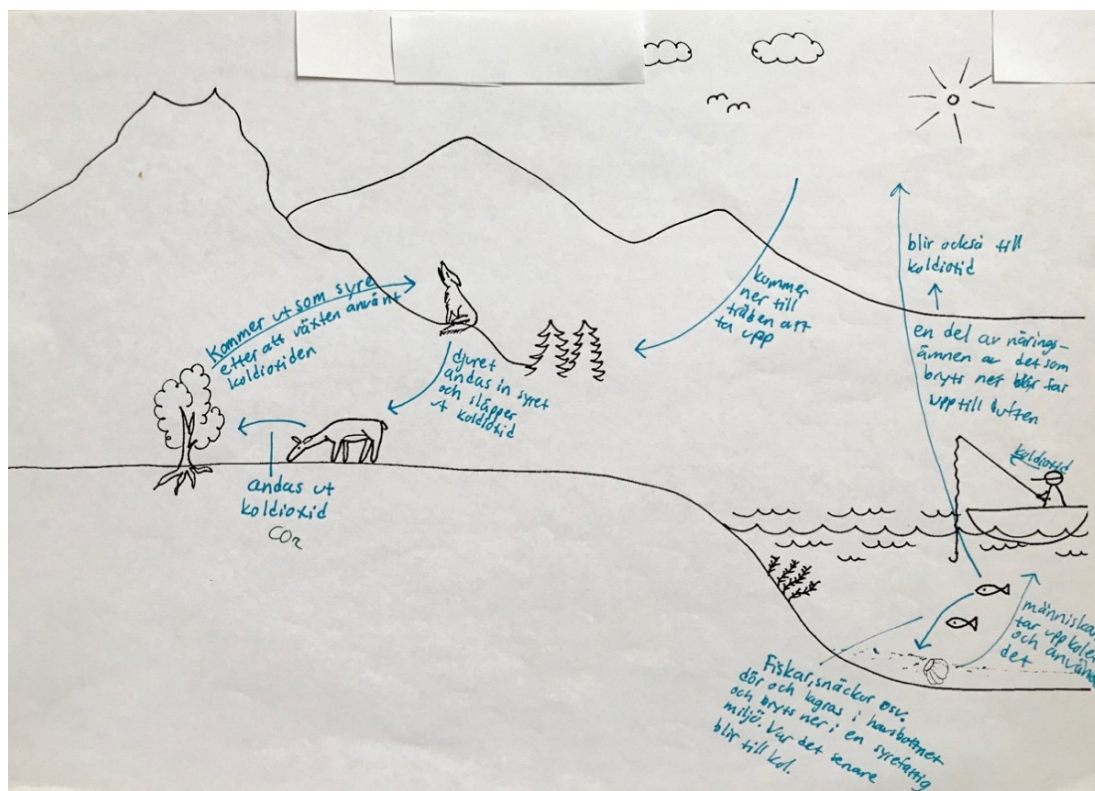 Kommer ut som syre
efter att växten använt
koldioxiden
djuret
andas in syret
och släpper
ut koldioxid
andas ut
koldioxid
CO2
kommer
ner till
träden att
ta upp
blir också till
koldioxid
en del av närings-
ämnen av det som
bryts ner blir far
upp till luften
koldioxid
människan
tar upp kolet
och använder
det
Fiskar, snäckor osv.
dör och lagras i havsbottnet
och bryts ner i en syrefattig
miljö. Var det senare
blir till kol.